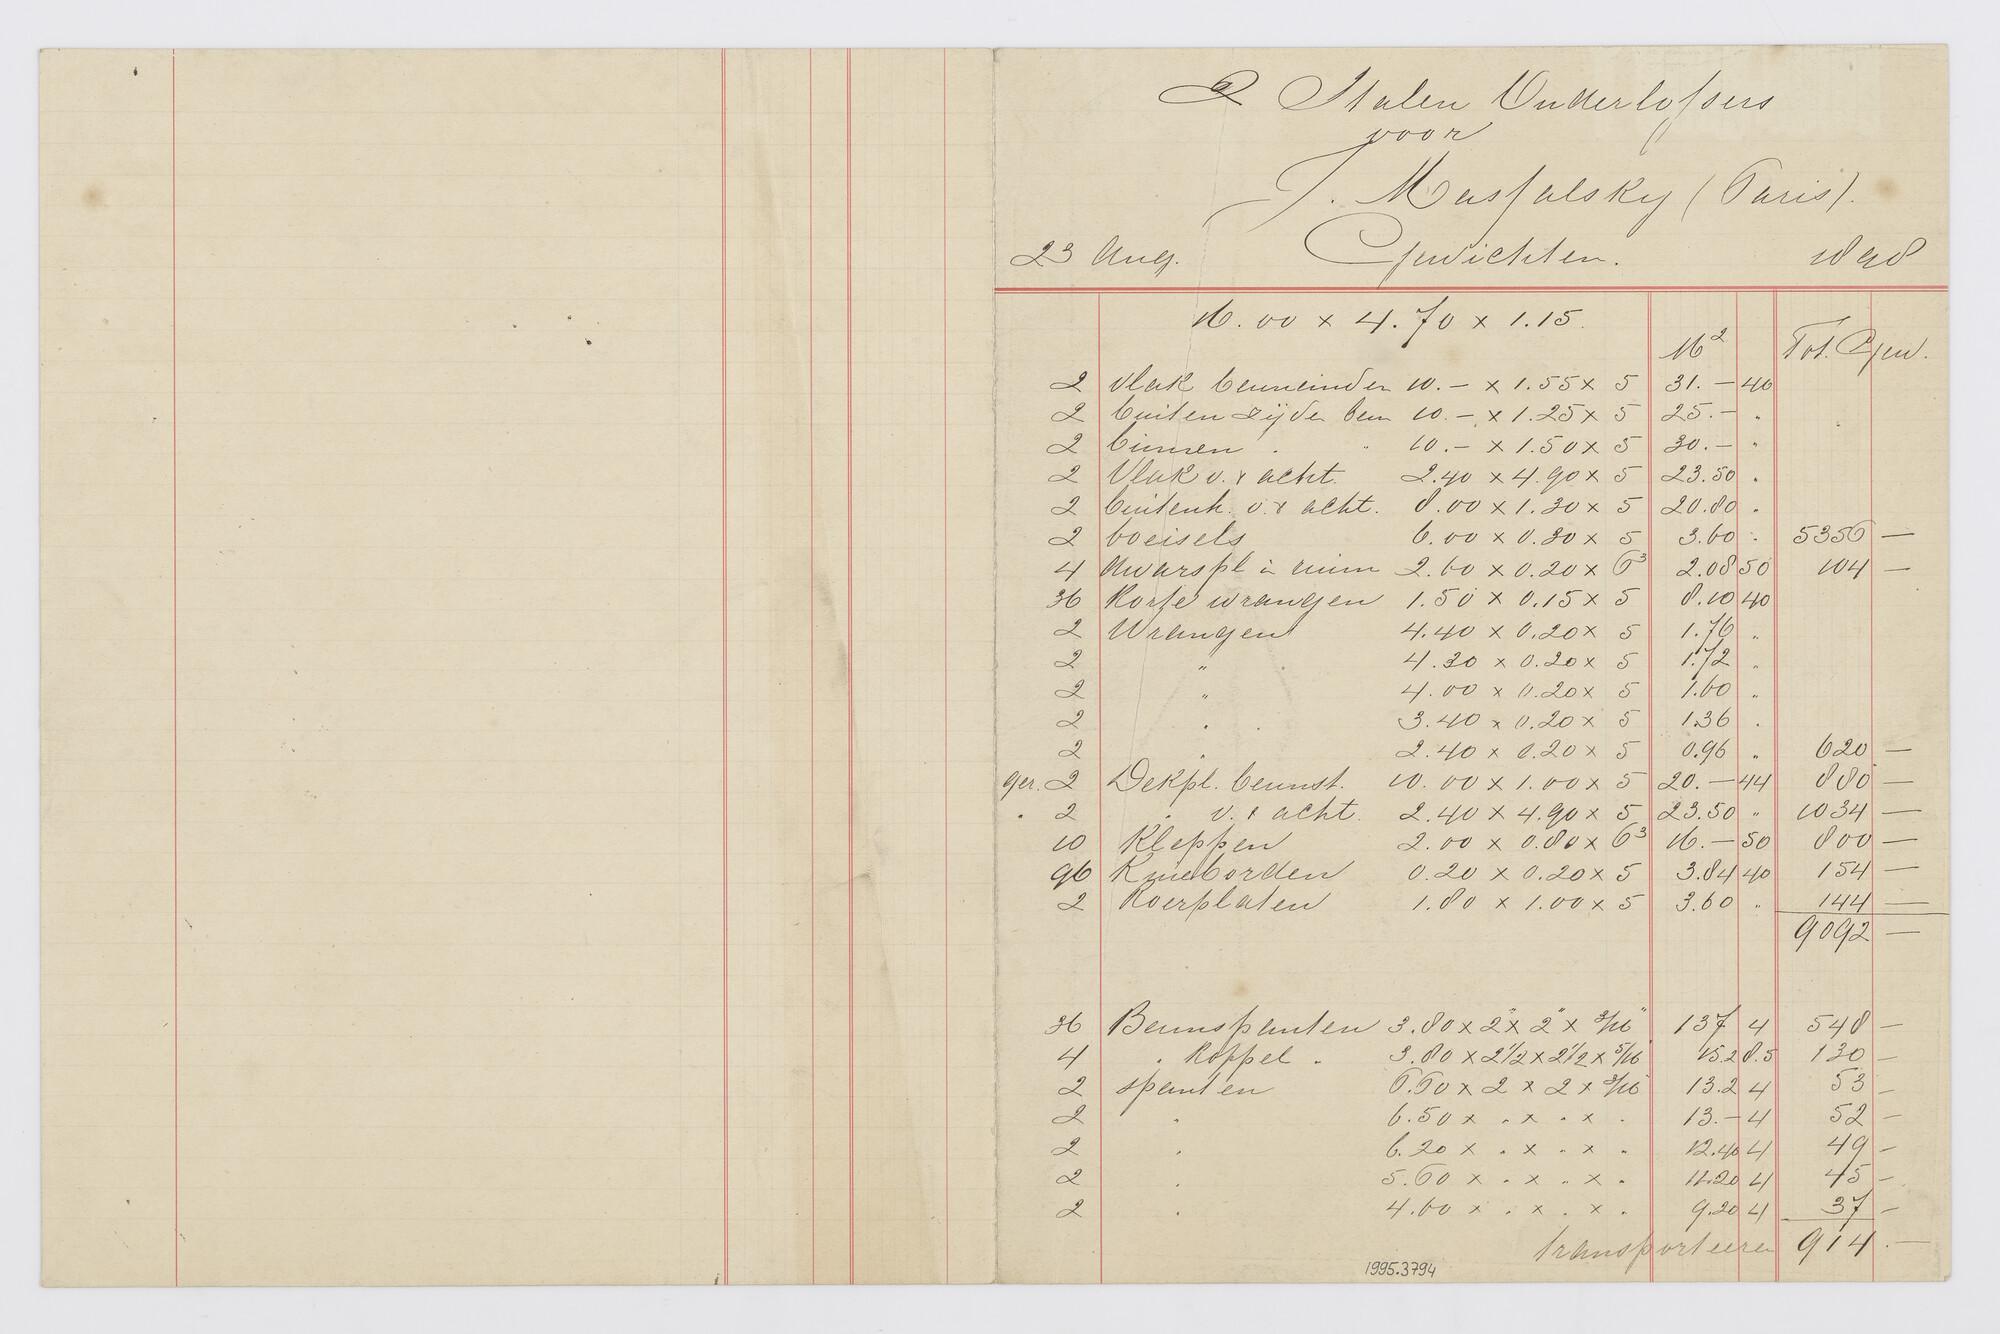 2 Stalen Onderlossers
voor
J. Masfalsky (Paris).
23 Aug. Gewichten. 1898
16.00 x 4.70 x 1.15.
M² Tot. Gew.
2 vlak beuneinden 10.- x 1.55 x 5 31.- 40
2 buiten zijde beun 10.- x 1.25 x 5 25.- "
2 binnen " " 10.- x 1.50 x 5 30.- "
2 Vlak v. & acht. 2.40 x 4.90 x 5 23.50 "
2 buitenh. v. & acht. 8.00 x 1.30 x 5 20.80 "
2 boeisels 6.00 x 0.30 x 5 3.60 " 5356 —
4 dwarspl in ruim 2.60 x 0.20 x 6³ 2.08 50 104 —
36 Korte wrangen 1.50 x 0.15 x 5 8.10 40
2 Wrangen 4.40 x 0.20 x 5 1.76 "
2 " 4.30 x 0.20 x 5 1.72 "
2 " 4.00 x 0.20 x 5 1.60 "
2 " 3.40 x 0.20 x 5 1.36 "
2 " 2.40 x 0.20 x 5 0.96 " 620 —
ger. 2 Dekpl. beunst. 10.00 x 1.00 x 5 20.- 44 880 —
" 2 " v. & acht. 2.40 x 4.90 x 5 23.50 " 1034 —
10 Kleppen 2.00 x 0.80 x 6³ 16.- 50 800 —
96 Knieborden 0.20 x 0.20 x 5 3.84 40 154 —
2 Roerplaten 1.80 x 1.00 x 5 3.60 " 144 —
9092 —
36 Beunspanten 3.80 x 2" x 2" x 3/16" 137 4 548 —
4 " Koppel " 3.80 x 2 1/2 x 2 1/2 x 5/16 15.2 8.5 130 —
2 spanten 6.60 x 2 x 2 x 3/16 13.2 4 53 —
2 " 6.50 x " x " x " 13.- 4 52 —
2 " 6.20 x " x " x " 12.40 4 49 —
2 " 5.60 x " x " x " 11.20 4 45 —
2 " 4.60 x " x " x " 9.20 4 37 —
transporteeren 914.—
1995.3794